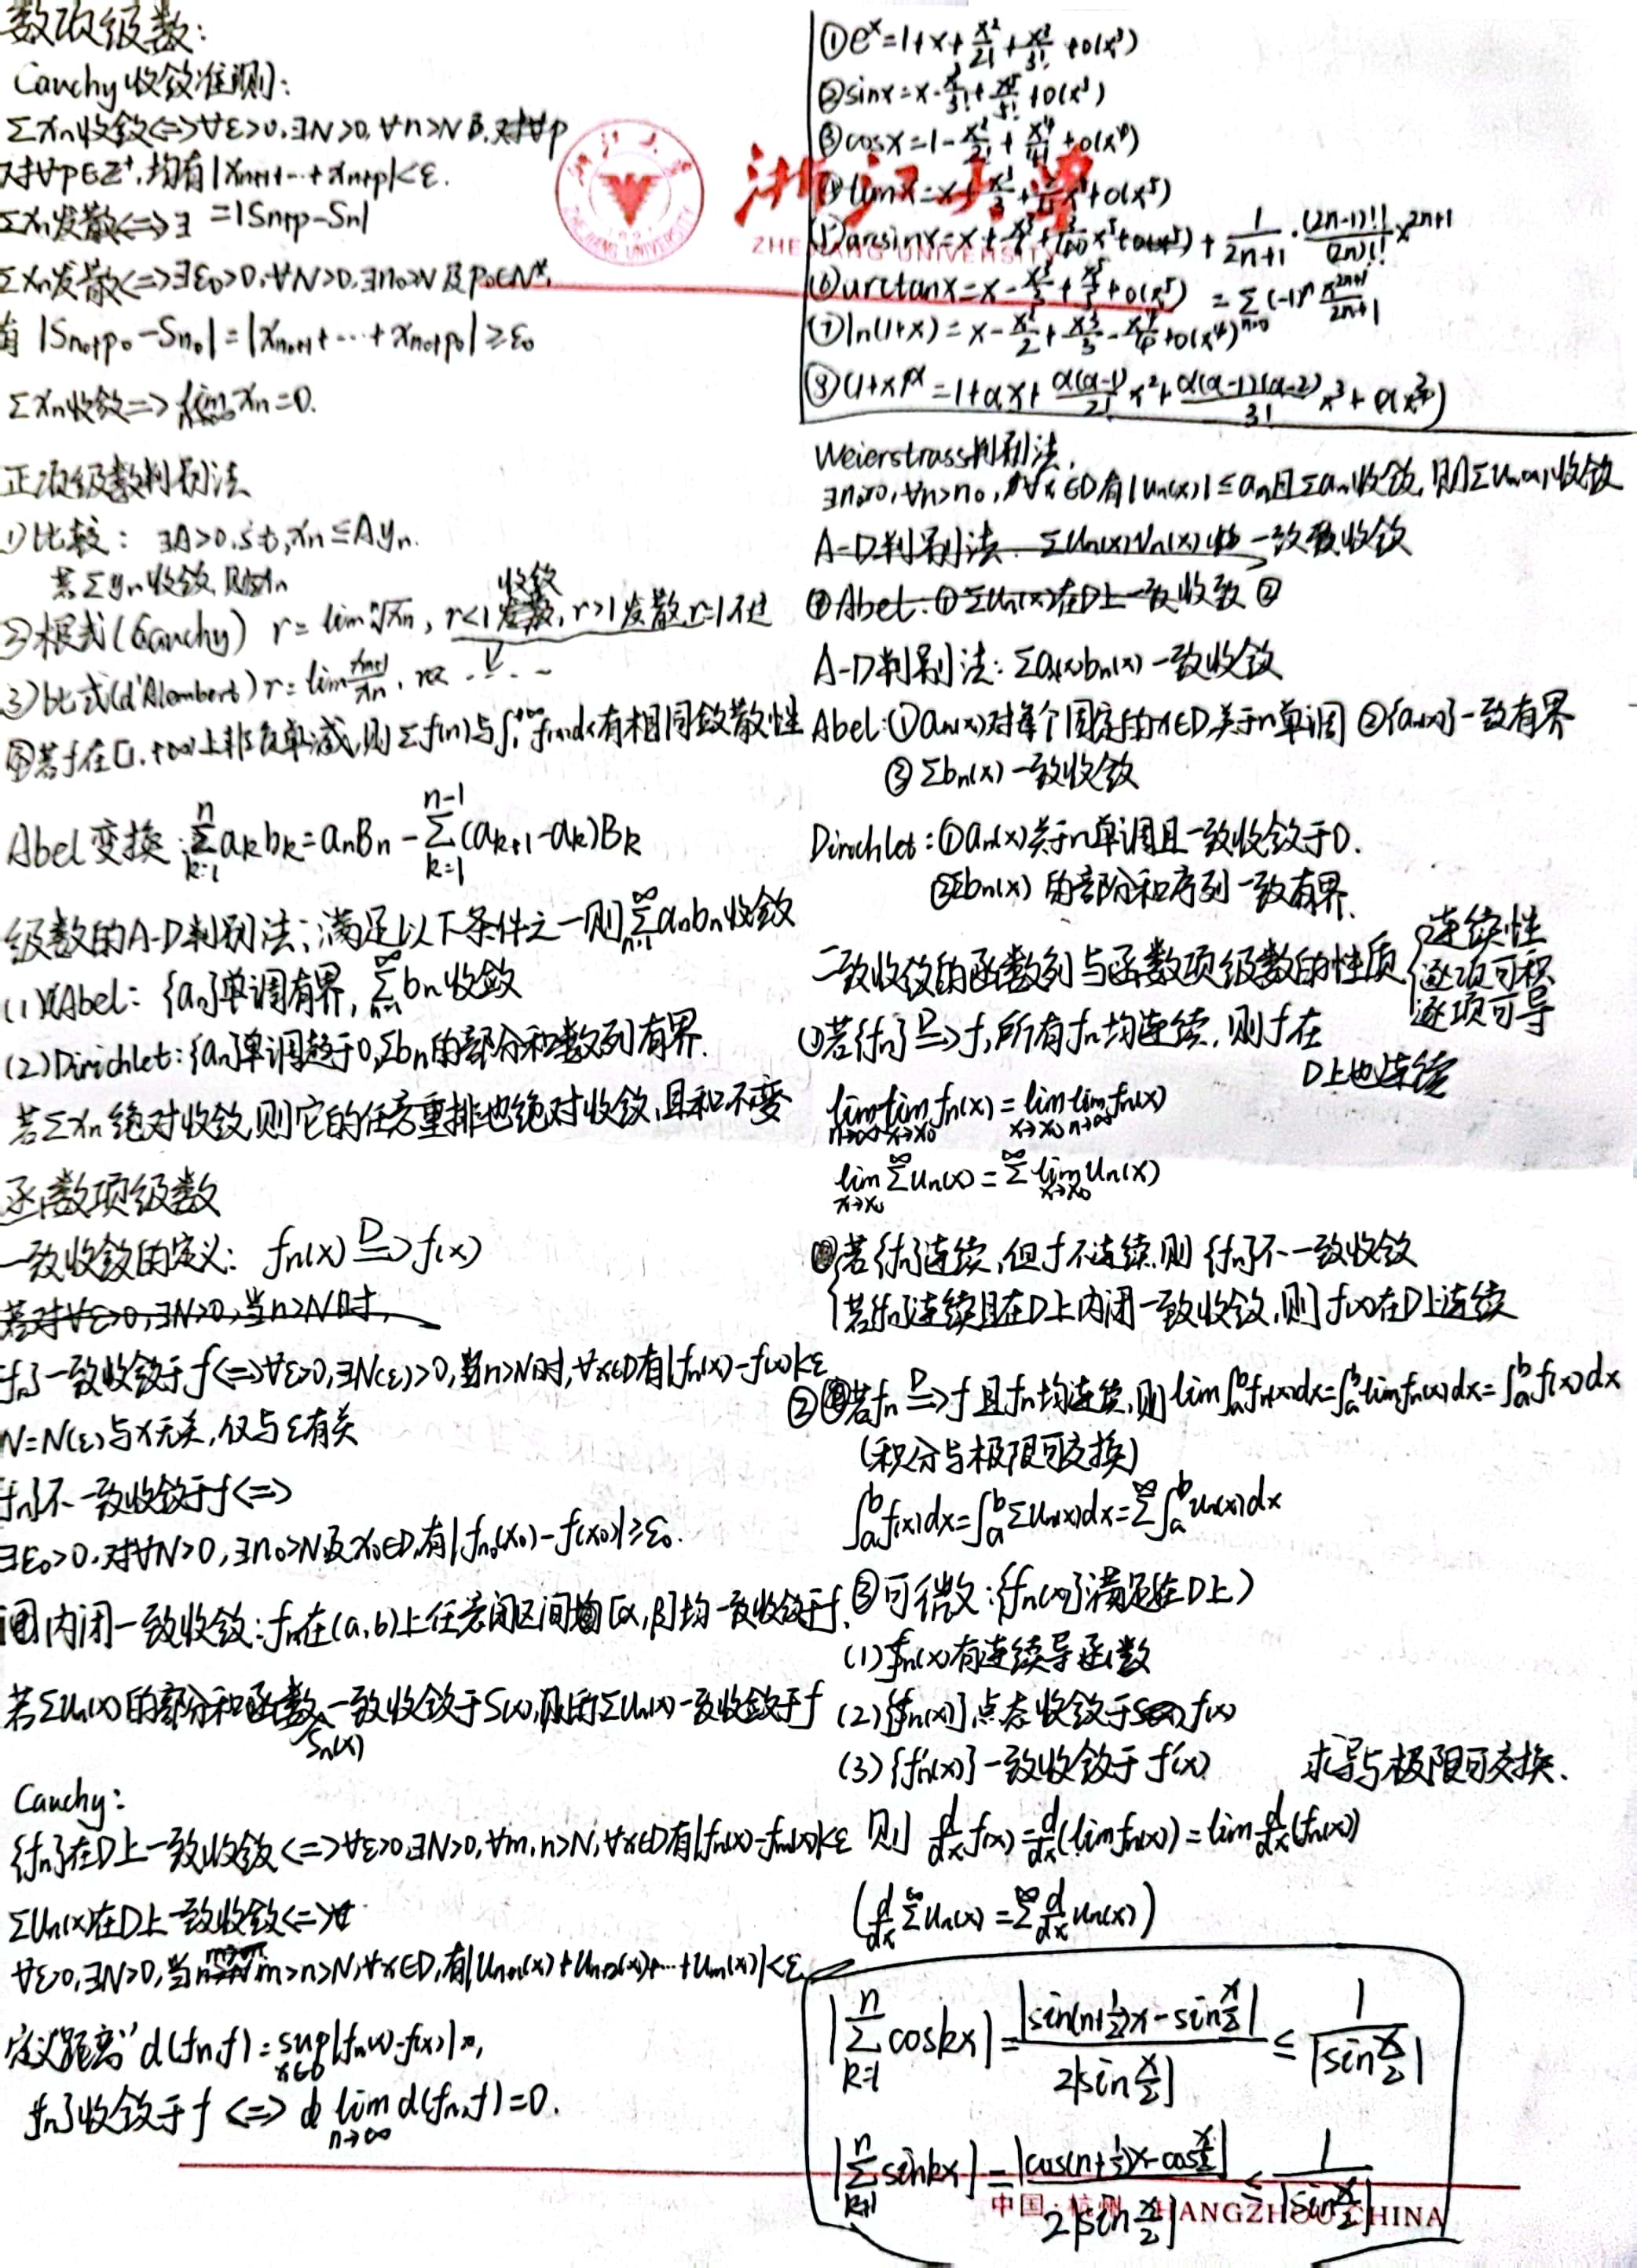 数项级数:
Cauchy收敛准则:
Σxn收敛<=>∀ε>0,∃N>0,∀n>N及,对∀p
对∀p∈Z⁺,均有|xn+1+…+xn+p|<ε.
Σxn发散<=>∃ =|Sn+p-Sn|
Σxn发散<=>∃ε0>0,∀N>0,∃n0>N及p0∈N*,
有 |Sn0+p0-Sn0|=|xn0+1+…+xn0+p0|≥ε0
Σxn收敛=>lim xn=0.
正项级数判别法
1)比较: ∃A>0,s.t,xn≤Ayn.
若Σyn收敛,则Σxn
收敛
2)根式(Cauchy) r=lim ⁿ√xn, r<1发散,r>1发散,r=1不过
3)比式(d'Alembert) r=lim xn+1/xn, …
④若f在[1,+∞)上非负单减,则Σf(n)与∫₁^{+∞}f(x)dx有相同敛散性
Abel变换:Σ_{k=1}^{n} akbk=anBn-Σ_{k=1}^{n-1}(ak+1-ak)Bk
级数的A-D判别法:满足以下条件之一则Σ_{n=1}^{∞}anbn收敛
(1)Abel: {an}单调有界, Σ_{n=1}^{∞} bn收敛
(2)Dirichlet:{an}单调趋于0,Σbn的部分和数列有界.
若Σxn绝对收敛,则它的任意重排也绝对收敛,且和不变
函数项级数
一致收敛的定义: fn(x) =D=> f(x)
若对∀ε>0,∃N>0,当n>N时,
fn}一致收敛于f<=>∀ε>0,∃N(ε)>0,当n>N时,∀x∈D有|fn(x)-f(x)|<ε
N=N(ε)与x无关,仅与ε有关
fn}不一致收敛于f<=>
∃ε0>0,对∀N>0,∃n0>N及x0∈D,有|fn0(x0)-f(x0)|≥ε0.
内闭一致收敛:fn在(a,b)上任意闭区间[α,β]均一致收敛于f.
若Σun(x)的部分和函数一致收敛于S(x),则Σun(x)一致收敛于f
Sn(x)
Cauchy:
{fn}在D上一致收敛<=>∀ε>0,∃N>0,∀m,n>N,∀x∈D有|fn(x)-fm(x)|<ε
Σun(x)在D上一致收敛<=>∀
∀ε>0,∃N>0,当m>n>N,∀x∈D,有|un+1(x)+un+2(x)+…+um(x)|<ε
定义"距离"d(fn,f)=sup_{x∈D}|fn(x)-f(x)|,
fn}收敛于f <=> lim_{n→∞} d(fn,f)=0.
①e^x=1+x+x²/2!+x³/3!+o(x³)
②sinx=x-x³/3!+x⁵/5!+o(x⁵)
③cosx=1-x²/2!+x⁴/4!+o(x⁴)
④tanx=x+x³/3+2/15x⁵+o(x⁵)
⑤arcsinx=x+ + x⁵+o(x⁵)+1/(2n+1)·(2n-1)!!/(2n)!! x^{2n+1}
⑥arctanx=x-x³/3+x⁵/5+o(x⁵) =Σ_{n=0}(-1)ⁿ x^{2n+1}/(2n+1)
⑦ln(1+x)=x-x²/2+x³/3-x⁴/4+o(x⁴)
⑧(1+x)^α=1+αx+α(α-1)/2! x²+α(α-1)(α-2)/3! x³+o(x³)
浙江大學
ZHEJIANG UNIVERSITY
Weierstrass判别法,
∃n0>0,∀n>n0,对∀x∈D有|un(x)|≤an且Σan收敛,则Σun(x)收敛
A-D判别法. Σun(x)vn(x) 一致收敛
①Abel:①Σun(x)在D上一致收敛②
A-D判别法:Σan(x)bn(x)一致收敛
Abel:①an(x)对每个固定的x∈D关于n单调②{an(x)}一致有界
③Σbn(x)一致收敛
Dirichlet:①an(x)关于n单调且一致收敛于0.
②Σbn(x)的部分和序列一致有界.
一致收敛的函数列与函数项级数的性质{连续性
逐项可积
逐项可导
①若{fn}=D=>f,所有fn均连续,则f在
D上也连续
lim_{n→∞} lim_{x→x0} fn(x)=lim_{x→x0} lim_{n→∞} fn(x)
lim_{x→x0} Σ^∞ un(x)=Σ^∞ lim_{x→x0} un(x)
若{fn}连续,但f不连续,则{fn}不一致收敛
若{fn}连续且在D上内闭一致收敛,则f(x)在D上连续
②若fn=D=>f且fn均连续,则lim∫ₐᵇfn(x)dx=∫ₐᵇlimfn(x)dx=∫ₐᵇf(x)dx
(积分与极限可交换)
∫ₐᵇf(x)dx=∫ₐᵇΣun(x)dx=Σ^∞∫ₐᵇun(x)dx
③可微:{fn(x)}满足(在D上)
(1)fn(x)有连续导函数
(2){fn(x)}点态收敛于f(x)
(3){f'n(x)}一致收敛于f'(x) 求导与极限可交换.
则 d/dx f(x)=d/dx(limfn(x))=lim d/dx(fn(x))
(d/dx Σ^∞ un(x)=Σ^∞ d/dx un(x))
|Σ_{k=1}^{n} coskx|=|sin(n+1/2)x-sin x/2|/2|sin x/2| ≤ 1/|sin x/2|
|Σ_{k=1}^{n} sinkx|=|cos(n+1/2)x-cos x/2|/2|sin x/2| ≤ 1/|sin x/2|
中国·杭州 HANGZHOU CHINA